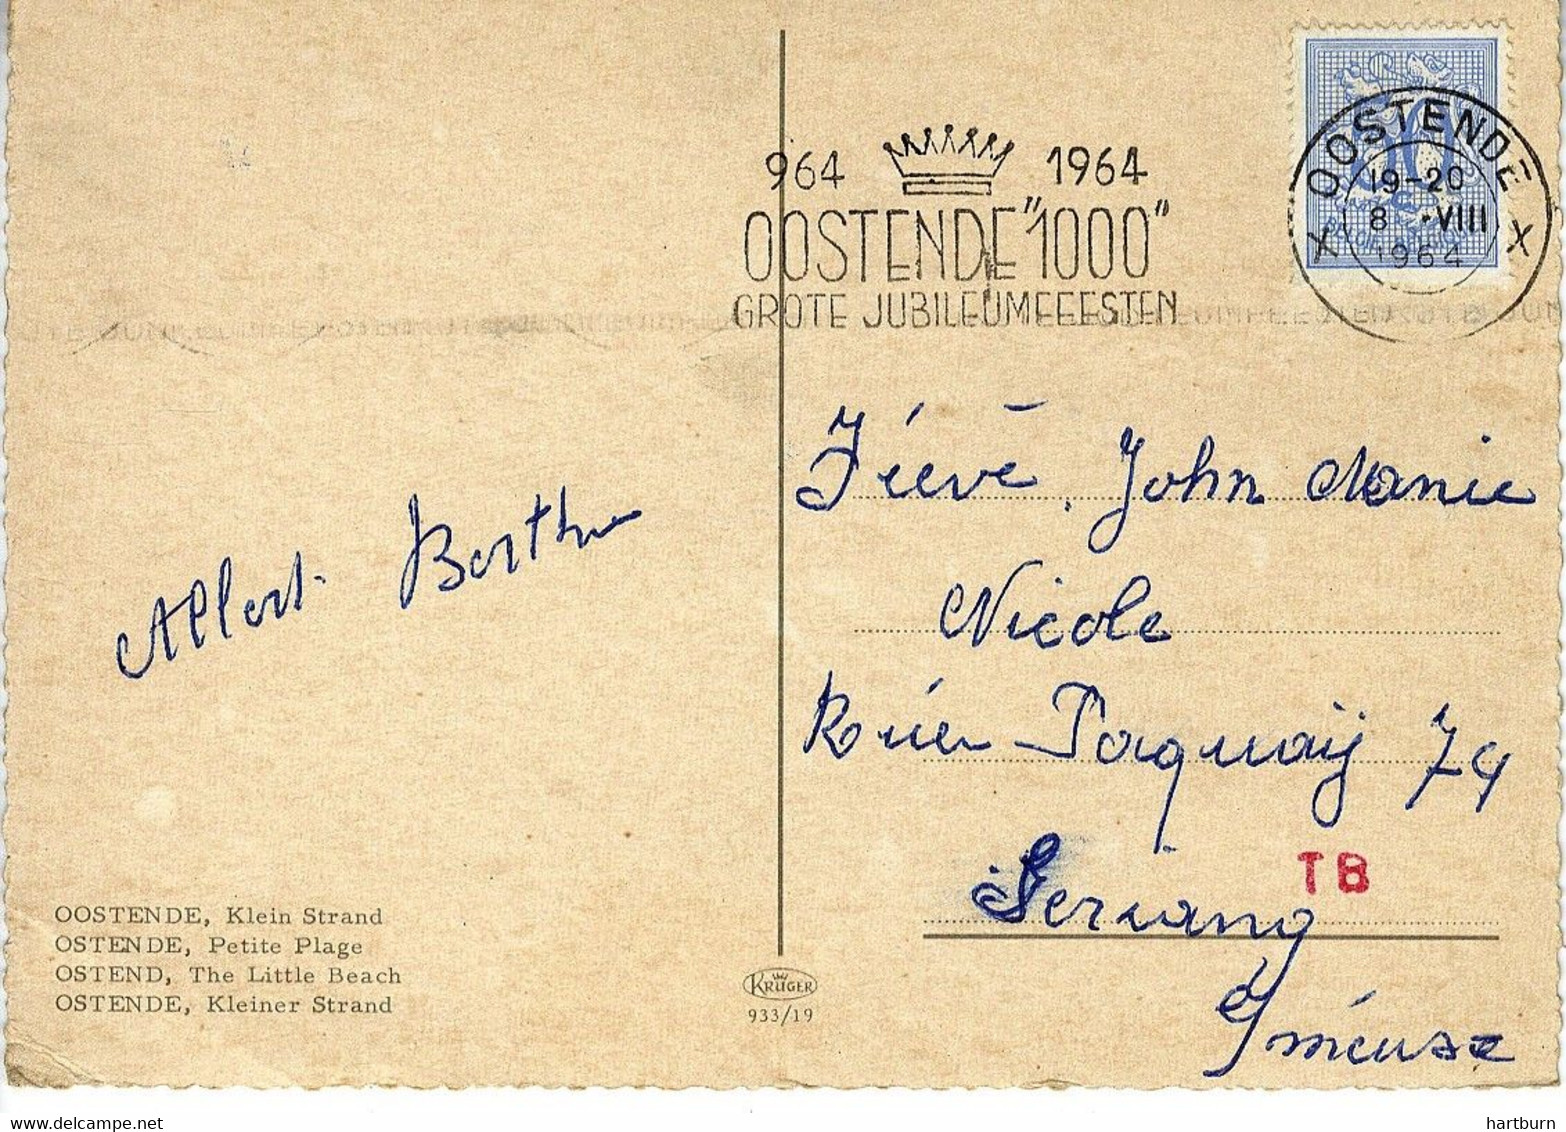 964 1964
OOSTENDE "1000"
GROTE JUBILEUMFEESTEN
OOSTENDE
19-20
8 •VIII
1964
X X
50
BELGIE
Jiévé John Manie
Nicole
Paquay 74
TB
Seraing
S/meuse
Albert Berthe
OOSTENDE, Klein Strand
OSTENDE, Petite Plage
OSTEND, The Little Beach
OSTENDE, Kleiner Strand
KRÜGER
933/19
hartburn